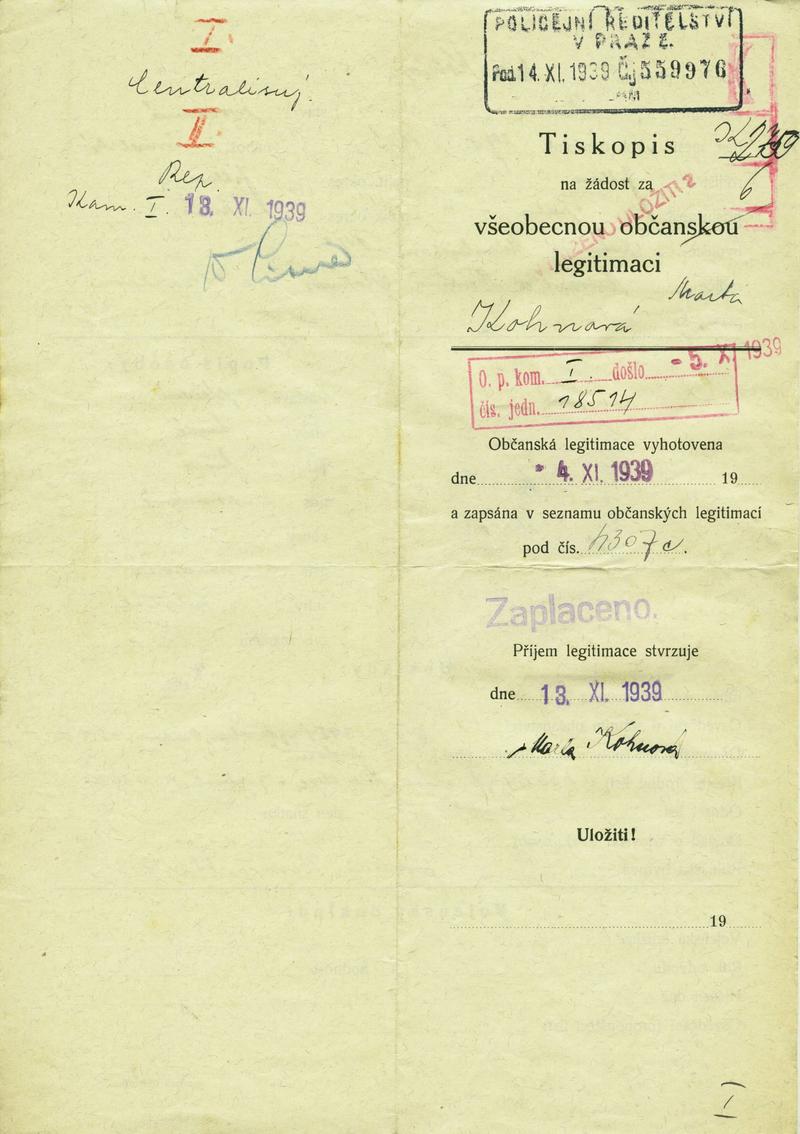 I.
Centralisuj.
II.
Rep.
Kom. I. 13. XI. 1939
POLICEJNÍ ŘEDITELSTVÍ
V PRAZE.
Pod. 14. XI. 1939 Čj 559976
Tiskopis
na žádost za
6
všeobecnou občanskou
legitimaci
Marta
Kohnová
O. p. kom. I. došlo - 5. XI 1939
čís. jedn. 18514
Občanská legitimace vyhotovena
dne 4. XI. 1939 19
a zapsána v seznamu občanských legitimací
pod čís. 4307 c.
Zaplaceno.
Příjem legitimace stvrzuje
dne 13. XI. 1939
Marta Kohnová
Uložiti!
19
I